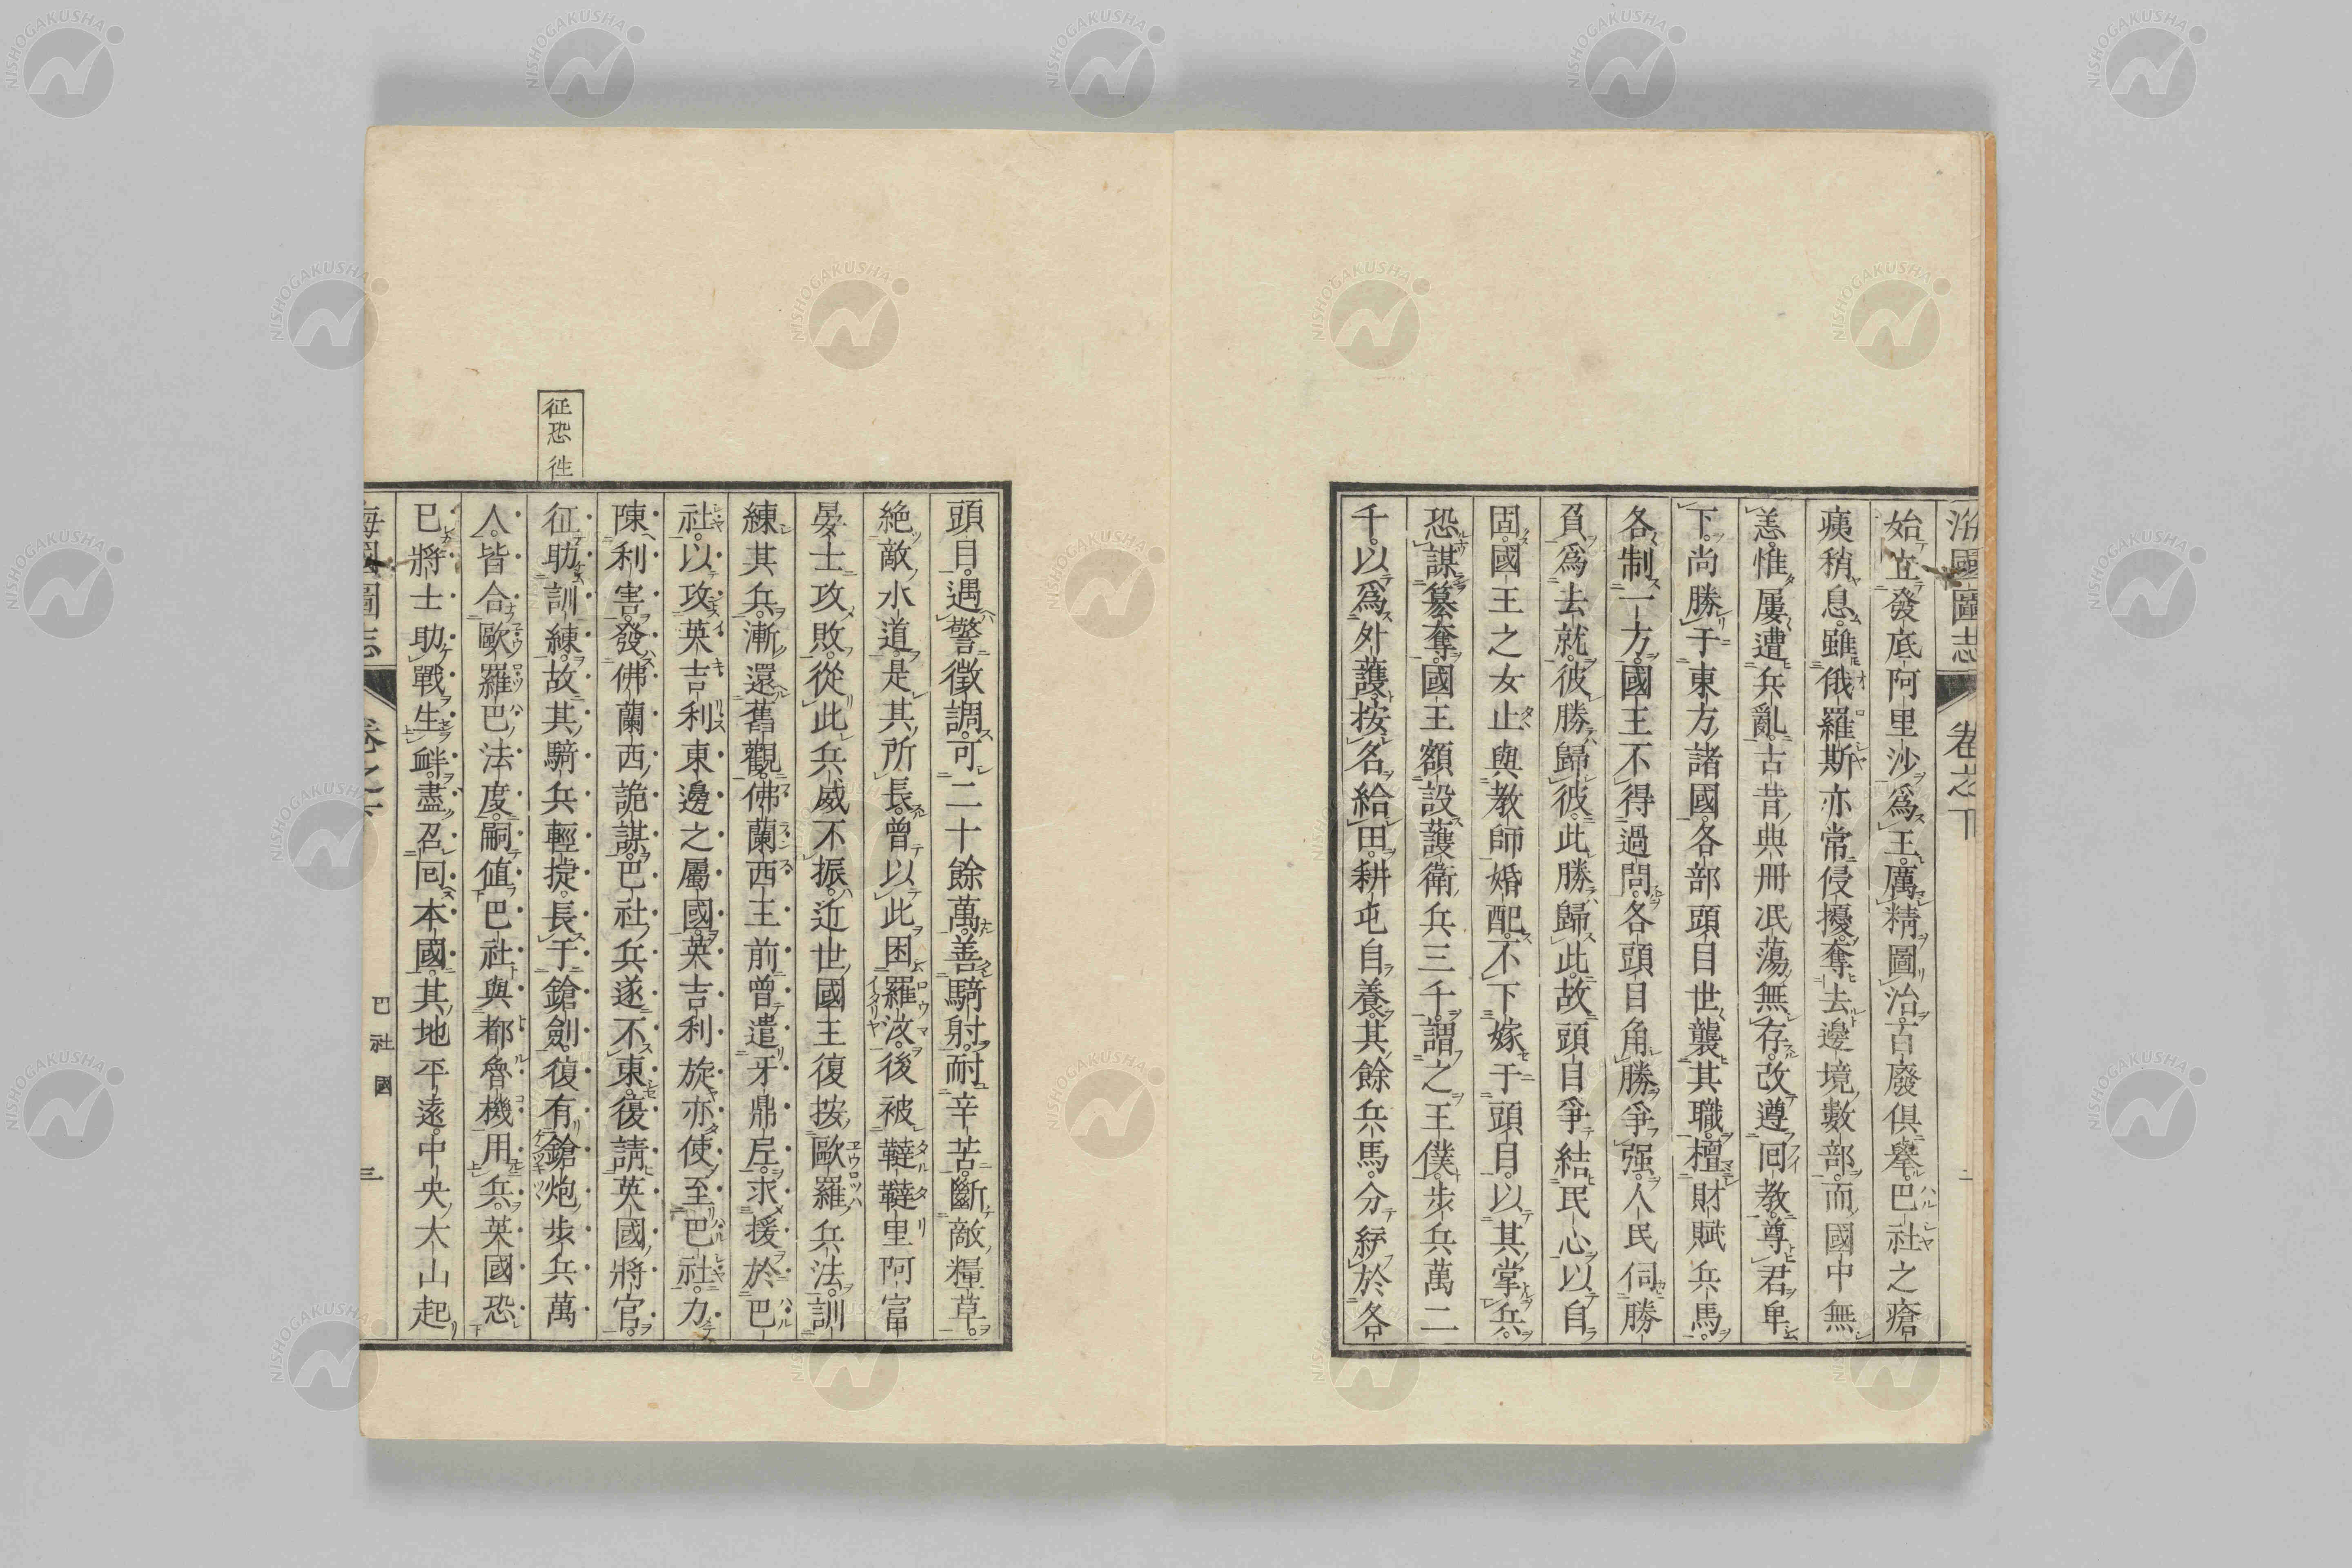 海國圖志
卷之下
二
始立發底阿里沙爲王。厲精圖治。百廢俱舉。巴社之瘡
痍稍息。雖俄羅斯亦常侵擾。奪去邊境數部。而國中無
恙。惟屢遭兵亂。古昔典冊泯蕩無存。改遵回教。尊君卑
下。尚勝于東方諸國。各部頭目世襲其職。擅財賦兵馬。
各制一方。國王不得過問。各頭目角勝爭强。人民伺勝
負爲去就。彼勝歸彼。此勝歸此。故頭目爭結民心。以自
固。國王之女止與教師婚配。不下嫁于頭目。以其掌兵。
恐謀簒奪。國王額設護衛兵三千。謂之王僕。步兵萬二
千。以爲外護。按名給田。耕屯自養。其餘兵馬。分綍於各
頭目。遇警徵調。可二十餘萬。善騎射。耐辛苦。斷敵糧草。
絶敵水道。是其所長。曾以此困羅汝。後被韃韃里阿富
晏士攻敗。從此兵威不振。近世國王復按歐羅兵法。訓
練其兵。漸還舊觀。佛蘭西王前曾遣牙鼎庢。求援於巴
社。以攻英吉利東邊之屬國。英吉利旋亦使至巴社。力
陳利害。發佛蘭西詭謀。巴社兵遂不東。復請英國將官。
征助訓練。故其騎兵輕捷。長于鎗劍。復有鎗炮步兵萬
人。皆合歐羅巴法度。嗣值巴社與都魯機用兵。英國恐
巳將士助戰生衅。盡召回本國。其地平遠。中央大山起
征恐徃
海國圖志
卷之下
巴社國
三
NISHOGAKUSHA